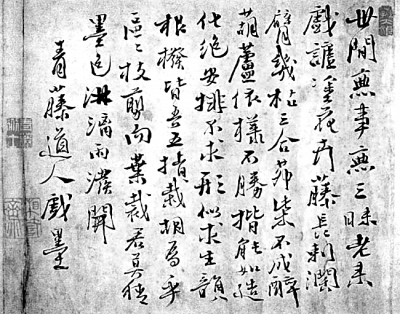 世間無事無三昧老來
戲謔塗花卉藤長刺闊
臂幾枯三合茅柴不成醉
葫蘆依樣不勝揩能如造
化絕安排不求形似求生韻
根撥皆吾五指栽胡為乎
區〻枝剪而葉裁君莫猜
墨色淋漓雨潑開
青藤道人戲墨